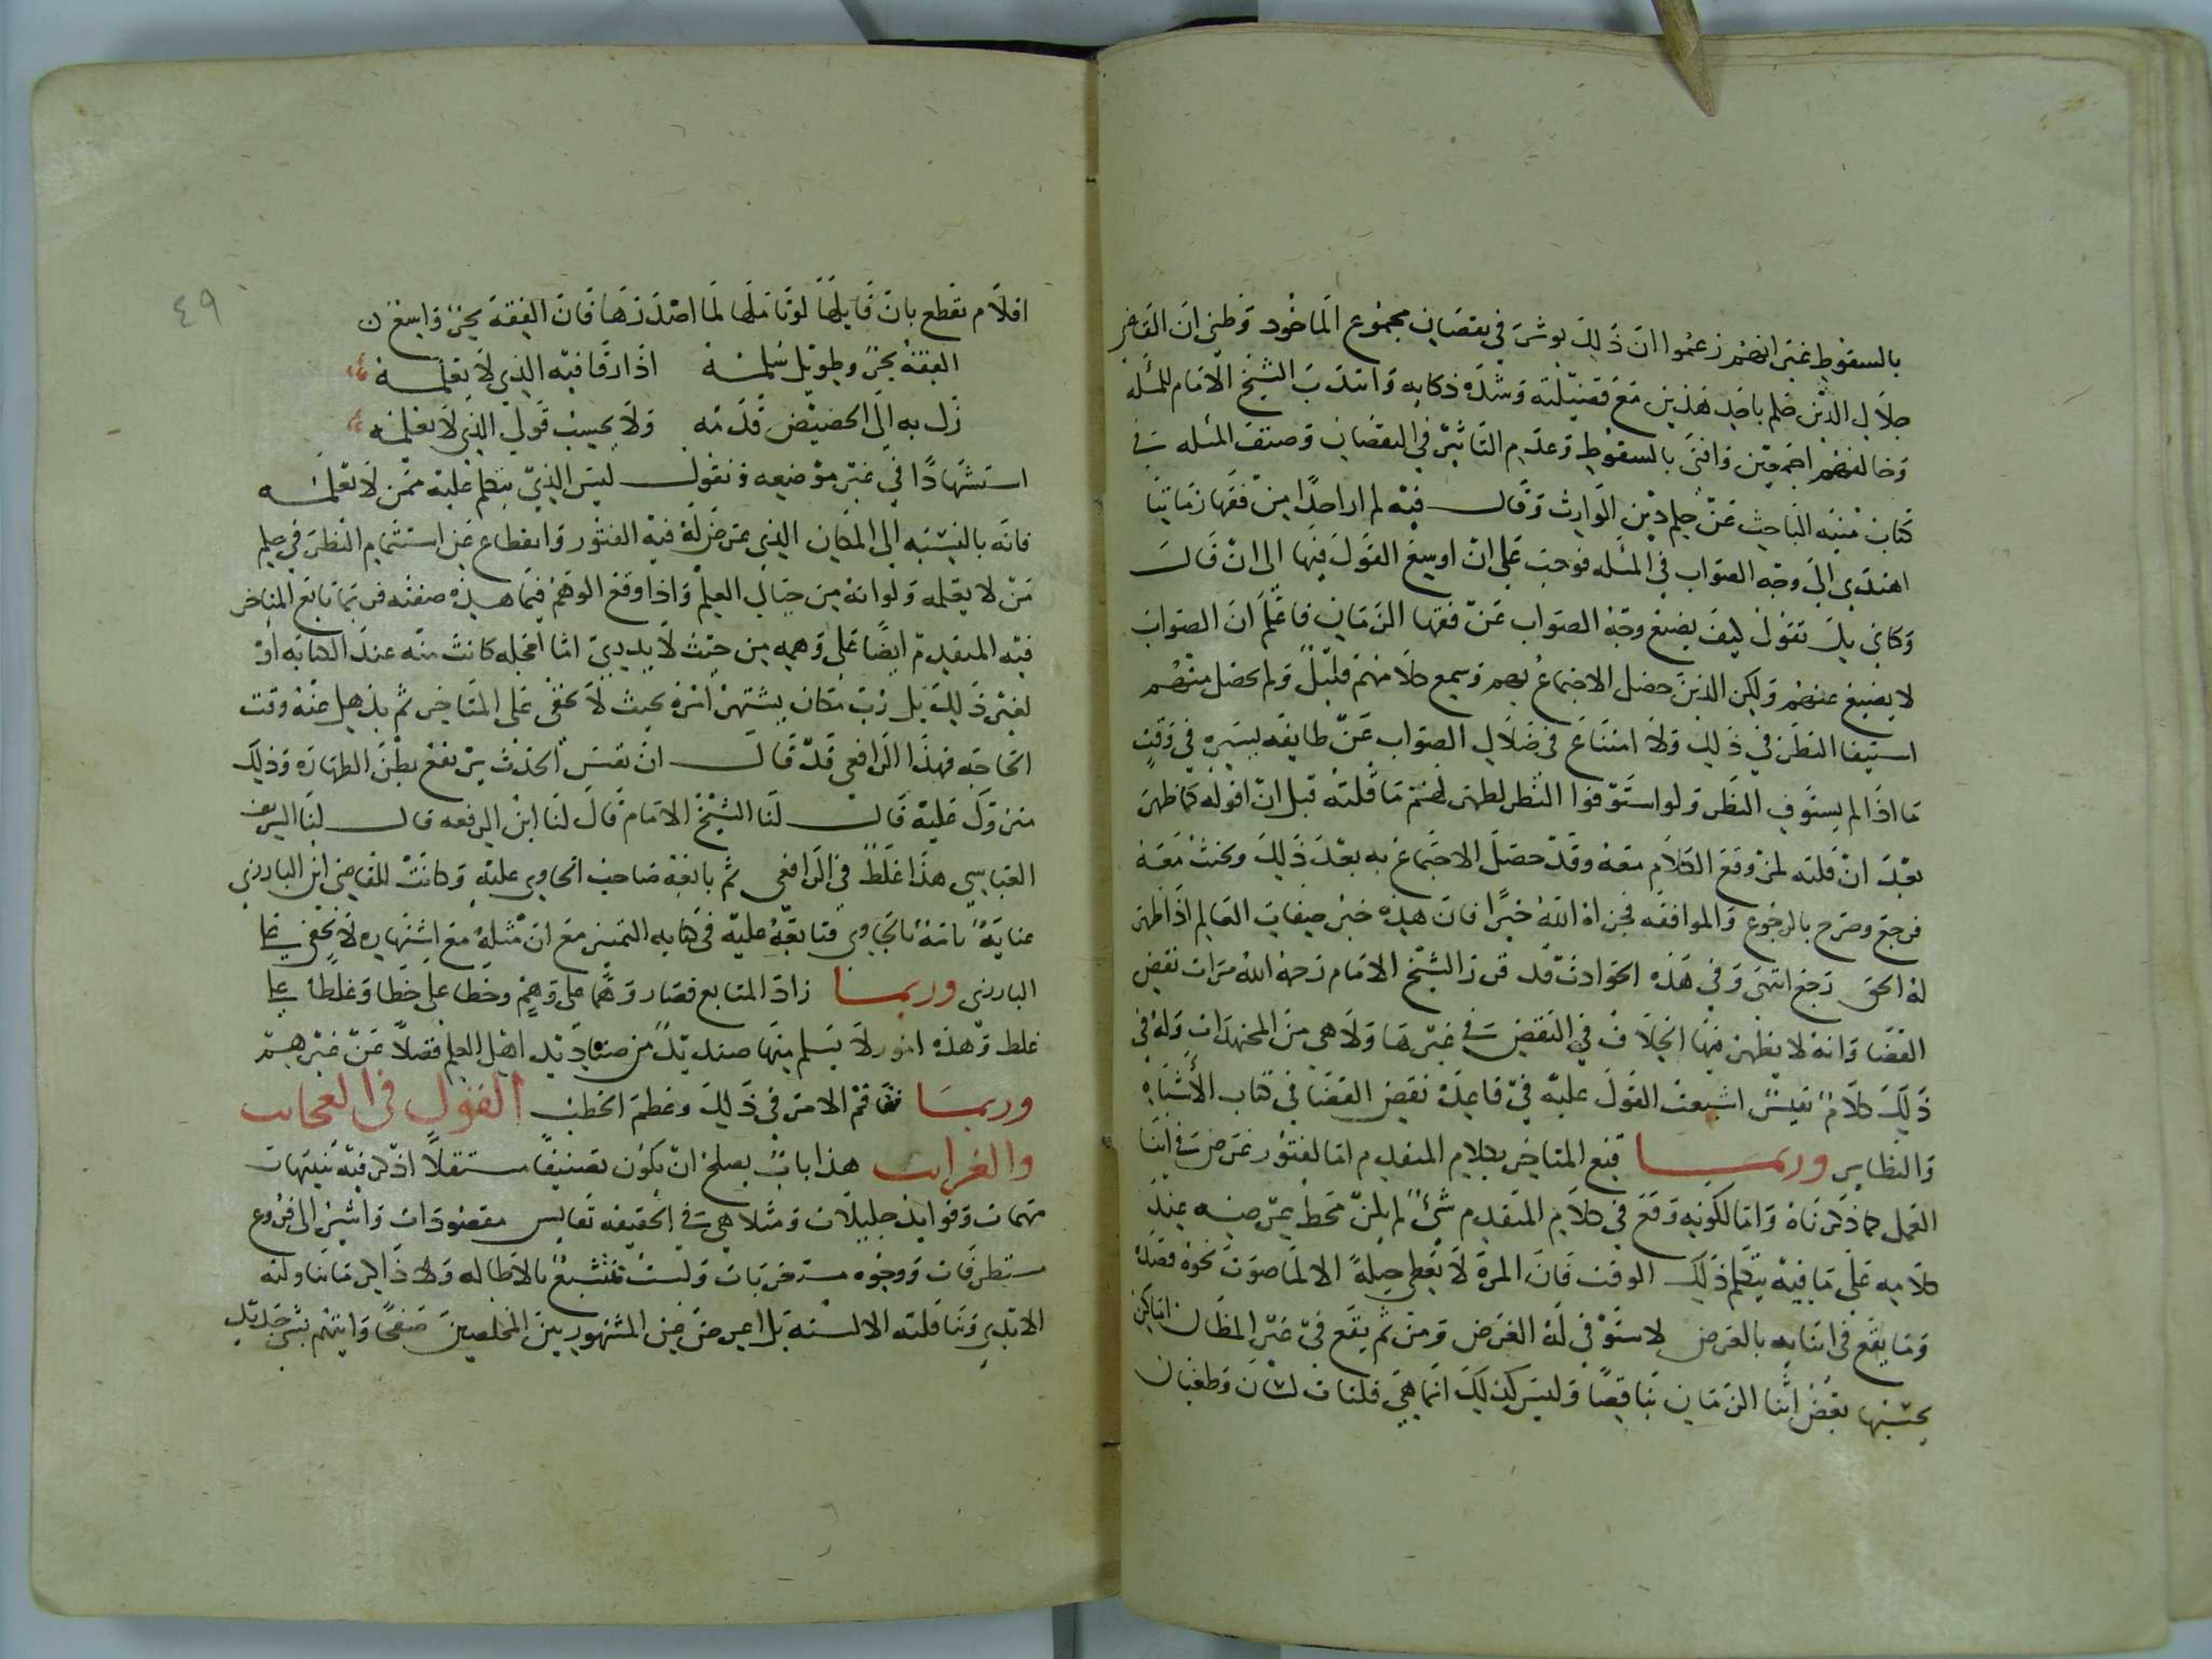 بالسقوط غير انهم زعموا ان ذلك يوثر في نقصان مجموع الماخوذ وظني ان القاضي
جلال الدين حلم باحد هذين مع فضيلته وشدة ذكايه وانتدب الشيخ الامام للمسله
وخالفهم اجمعين وافتى بالسقوط وعدم التاثير في النقصان وصنف المسله في
كتاب منيه الباحث عن حكم دين الوارث وقال فيه لم ار احدا من فقها زماننا
اهتدى الى وجه الصواب في المسله فوجب على ان اوسع القول فيها الى ان قال
وكاني بك تقول كيف يضيع وجه الصواب عن فقها الزمان فاعلم ان الصواب
لا يضيع عنهم ولكن الذين حصل الاجتماع بهم وسمع كلامهم قليل ولم يحصل منهم
استيفا النظر في ذلك ولا امتناع في ضلال الصواب عن طايفه يسيره في وقت
ما اذا لم يستوف النظر ولو استوفوا النظر لظهر لهم ما قلته قبل ان اقوله كما ظهر
بعد ان قلته لمن وقع الكلام معه وقد حصل الاجتماع به بعد ذلك وبحثت معه
فرجع وصرح بالرجوع والموافقه فجزاه الله خيرا فان هذه خير صفات العالم اذا ظهر
له الحق رجع انتهى وفي هذه الحوادث قد قرر الشيخ الامام رحمه الله مرات نقض
القضا وانه لا يظهر فيها الخلاف في النقض في غيرها ولا هي من المجتهدات وله في
ذلك كلام نفيس اشبعت القول عليه في قاعدة نقض القضا في كتاب الاشباه
والنظاير وربما قنع المتاخر بكلام المتقدم اما لفتور عرض في اثنا
العمل كما ذكرناه واما لكونه وقع في كلام المتقدم شئ لم يكن محط غرضه عند
كلامه على ما فيه يتكلم ذلك الوقت فان المرة لا يعطى حيله الا لما صوب نحوه قصده
وما يقع في اثنايه بالعرض لا يستوفي له الغرض ومن ثم يقع في غير المظان اماكن
يحسبها بعض ابنا الزمان تناقضا وليس كذلك انما هي فلتات لسان وطغيان
٤٩
اقلام نقطع بان قايلها لو تاملها لما اصدرها فان الفقه بحر واسع ن
الفقه بحر وطويل سلمه اذا ارتقا فيه الذي لا يعلمه
زل به الى الحضيض قدمه ولا يحسب قولي الذي لا يعلمه
استشهادا في غير موضعه ونقول ليس الذي يتكلم عليه ممن لا يعلمه
فانه بالنسبه الى المكان الذي عرض له فيه الفتور وانقطاع عن استتمام النظر في حكم
من لا يعلمه ولو انه من جبال العلم واذا وقع الوهم فيما هذه صفته فربما تابع المتاخر
فيه المتقدم ايضا على وهمه من حيث لا يدري اما لعجله كانت منه عند الكتابه او
لغير ذلك بل رب مكان يشتهر امره بحيث لا يخفى على المتاخر ثم يذهل عنه وقت
الحاجه فهذا الرافعي قد قال ان نفس الحدث يرتفع بطن الطهاره وذلك
متزول عليه قال لنا الشيخ الامام قال لنا ابن الرفعه قال لنا الشريف
العباسي هذا غلط في الرافعي ثم تابعه صاحب الحاوي عليه وكانت للقاضي ابن البارزي
عناية تامة بالحاوي فتابعه عليه في كتابه التمييز مع ان مثله مع اشتهاره لا يخفى على
البارزي وربما زاد المتابع فصار وهما على وهم وخطا على خطا وغلطا على
غلط وهذه امور لا يسلم منها صنديد من صناديد اهل العلم فضلا عن غيرهم
وربما تفاقم الامر في ذلك وعظم الخطب القول في العجائب
والغرائب هذا باب يصلح ان يكون تصنيفا مستقلا اذكر فيه تنبيهات
مهمات وفوايد جليلات ومثلا هي في الحقيقه نفايس مقصودات واشير الى فروع
مستطرفات ووجوه مستغربات ولست متشبع بالاطاله ولا ذاكر ما تناولته
الايدي وتناقلته الالسنه بل اعرض عن المشهور بين المخلصين صفحا وايتهم بشئ جديد